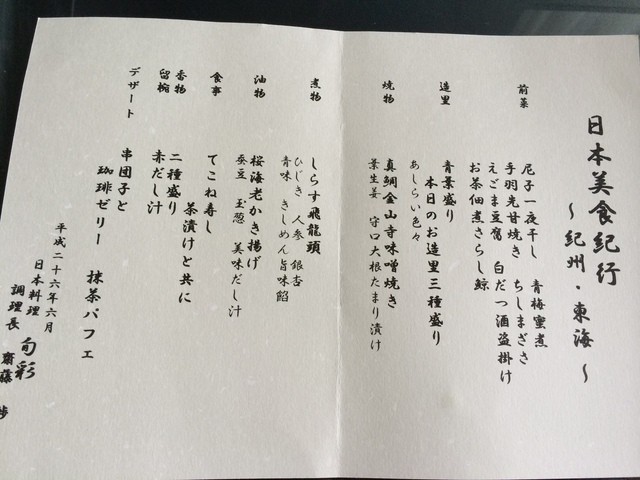 日本美食紀行
～紀州・東海～
前菜
尼子一夜干し 青梅蜜煮
手羽先甘焼き ちしまざさ
えごま豆腐 白だつ酒盗掛け
お茶佃煮さらし鯨
造里
青葉盛り
本日のお造里三種盛り
あしらい色々
焼物
真鯛金山寺味噌焼き
葉生姜 守口大根たまり漬け
煮物
しらす飛龍頭
ひじき 人参 銀杏
青味 きしめん旨味餡
油物
桜海老かき揚げ
蚕豆 玉葱 美味だし汁
食事
てこね寿し
茶漬けと共に
香物
二種盛り
留椀
赤だし汁
デザート
串団子と 抹茶パフェ
珈琲ゼリー
平成二十六年六月
日本料理 旬彩
調理長 齋藤 歩